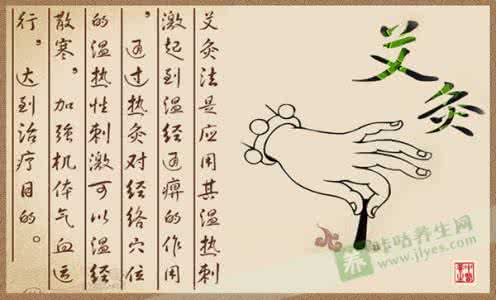 艾灸
艾灸法是应用其温热刺
激起到温经通痹的作用
，通过热灸对经络穴位
的温热性刺激可以温经
散寒，加强机体气血运
行，达到治疗目的。
养
咔咕养生网
www.jlyes.com